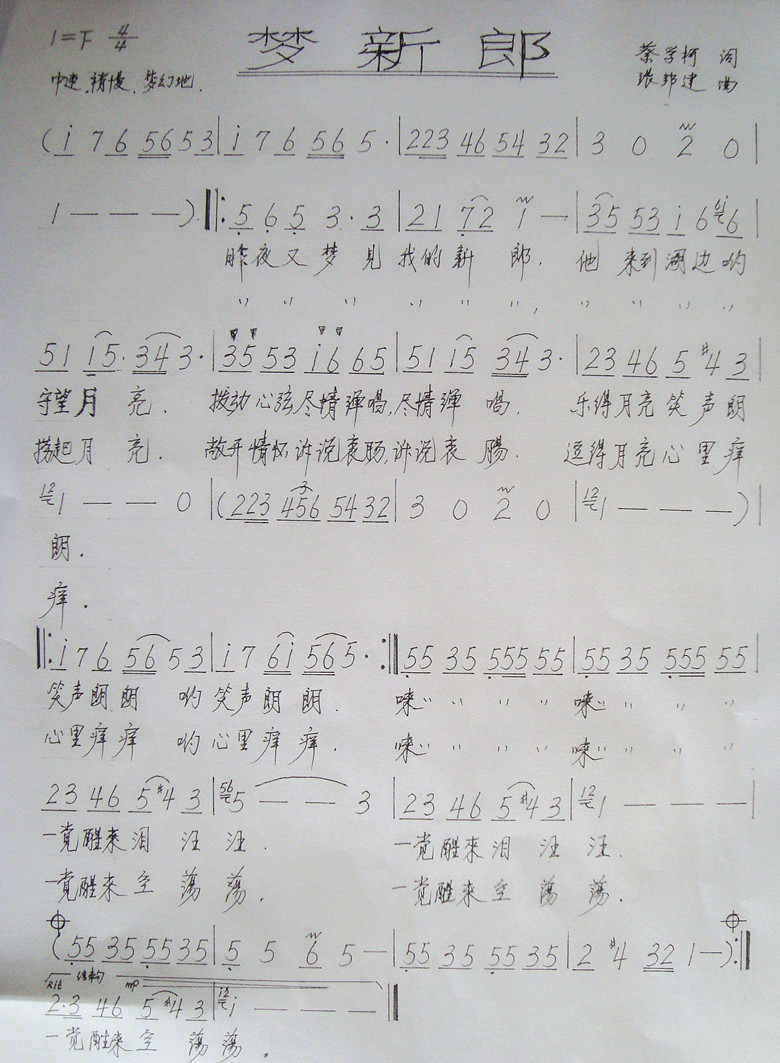 1=F 4/4 梦新郎 蔡学柯 词
中速、稍慢、梦幻地. 张邦建 曲
(i 7 6 56 53 | i 7 6 56 5· | 223 46 54 32 | 3 0 2 0 |
1 — — —) ‖: 5 6 5 3·3 | 21 72 1 — | 35 53 i 6 6i 6
昨夜又梦见我的新郎. 他来到湖边哟
〃 〃 〃 〃 〃 〃, 〃 〃 〃 〃 〃
51 i5· 34 3· | 35 53 i6 65 | 51 i5 34 3· | 23 46 5 #4 3 |
守望月亮. 拨动心弦,尽情弹唱,尽情弹唱. 乐得月亮笑声朗
捞起月亮. 敞开情怀,诉说衷肠,诉说衷肠. 逗得月亮心里痒
12 1 — — 0 | (223 3 456 54 32 | 3 0 2 0 | 12 1 — — —)
朗.
痒.
‖: i 7 6 56 53 | i 7 6i 56 5· :‖ 55 35 555 55 | 55 35 555 55 |
笑声朗朗哟笑声朗朗. 唻〃 〃 〃 〃 唻〃 〃 〃 〃
心里痒痒哟心里痒痒. 唻〃 〃 〃 〃 唻〃 〃 〃 〃
23 46 5 #4 3 | 56 5 — — 3 | 23 46 5 #4 3 | 12 1 — — — |
一觉醒来泪汪汪. 一觉醒来泪汪汪.
一觉醒来空荡荡. 一觉醒来空荡荡.
(55 35 55 35 | 5 5 6 5 — | 55 35 55 35 | 2 #4 32 1 —) :‖
Rit 结束句 mp
2·3 46 5 #4 3 | 12 i — — — ‖
一觉醒来空荡荡.